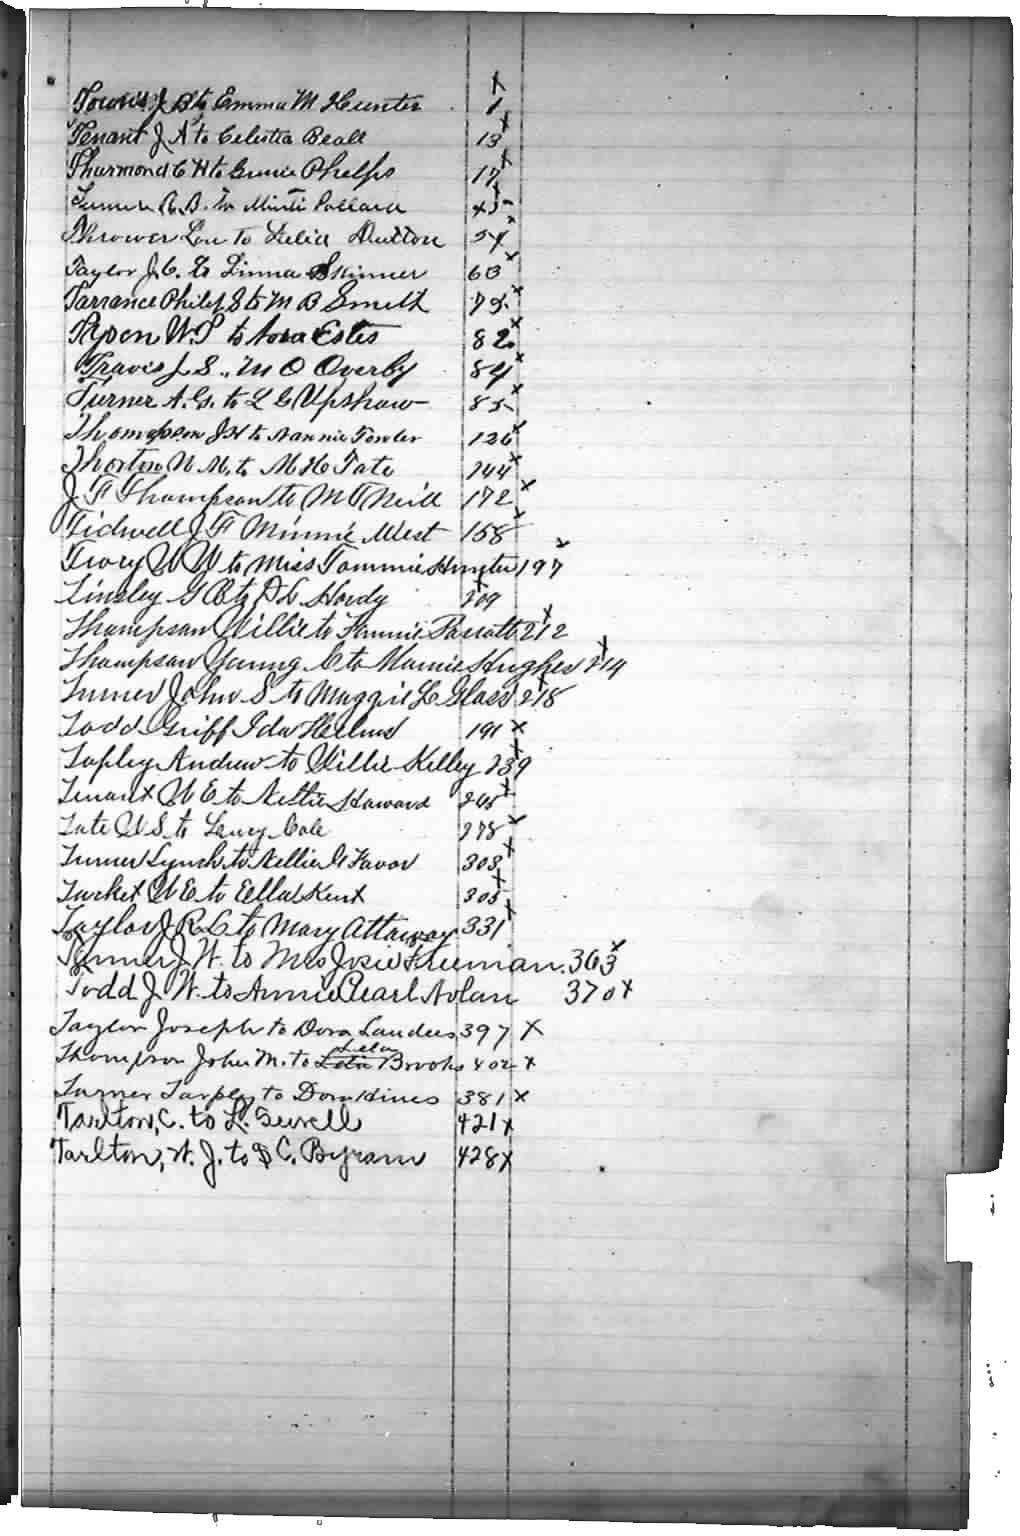 Towns J B to Emma M Hunter 1 x
Tenant J A to Celestia Beall 13 x
Thurmond C H to Genie Phelps 17 x
Turner R. B. to Minti Pollard 45 x
Thrower Lou to Lelia Dutton 54 x
Taylor J. C. to Linna Skinner 63 x
Tarrance Philip S to M B Smith 75 x
Tyson W. P to Nora Estes 82 x
Travis J. S. " M O Overby 84 x
Turner A. G. to L C Upshaw 85 x
Thompson J H to Nannie Fowler 126 x
Thorton N. M. to M H Tate 144 x
J F Thompson to M T Neill 172 x
Tidwell J F Minnie West 158 x
Tivory W W to Miss Tommie Hunter 197 x
Tinsley G B to D L Hardy 209 x
Thompson Willie to Fannie Parrott 212 x
Thompson Young C to Mamie Hughes 214 x
Turner John S to Maggie L Glass 218 x
Todd Griff Ida Helms 191 x
Tapley Andrew to Willie Kelley 239 x
Tenant W E to Nettie Howard 245 x
Tate W S to Lency Cole 278 x
Turner Lynch to Nellie G Favor 303 x
Tucket W E to Ella Kent 305 x
Taylor J. R. L to Mary Attaway 331 x
Turner J. W. to Mrs Josie Freeman. 363 x
Todd J. W. to Annie Pearl Nolan 370 x
Taylor Joseph to Dora Landers 397 x
Thompson John M. to Lela Brooks 402 x
Turner Tarpley to Dora Hines 381 x
Tarlton, C. to L. Sewell 421 x
Tarlton, W. J. to D C. Byram 428 x